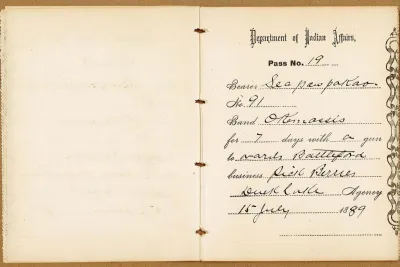 Department of Indian Affairs,
Pass No. 19
Bearer Sea paw pakao
No. 91
Band Okemassis
for 7 days with a gun
to wards Battleford
business Pick Berries
Duck Lake Agency
15 July 1889